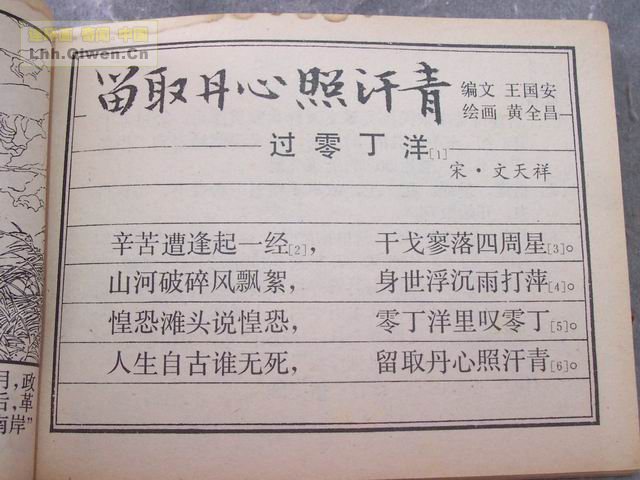 Lhh.Qiwen.Cn
留取丹心照汗青
编文 王国安
绘画 黄全昌
过零丁洋[1]
宋·文天祥
辛苦遭逢起一经[2]， 干戈寥落四周星[3]。
山河破碎风飘絮， 身世浮沉雨打萍[4]。
惶恐滩头说惶恐， 零丁洋里叹零丁[5]。
人生自古谁无死， 留取丹心照汗青[6]。
月，政
后，革
南岸”